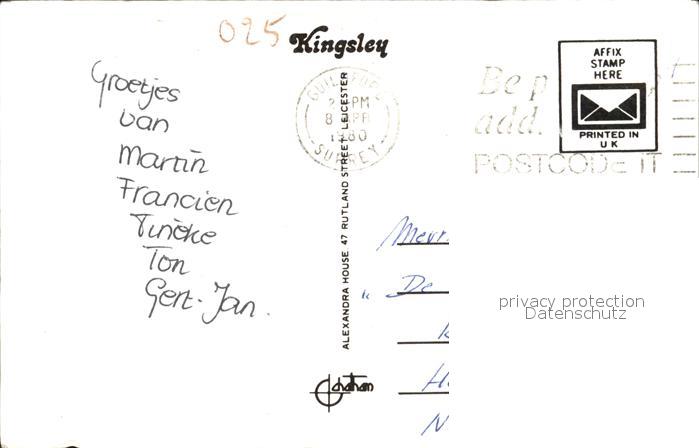 025
Kingsley
AFFIX
STAMP
HERE
PRINTED IN
UK
GUILDFORD
PM
8 APR
1980
SURREY
Be
add.
POSTCODE IT
Groetjes
van
Martin
Francien
Tineke
Ton
Gert-Jan.
ALEXANDRA HOUSE 47 RUTLAND STREET LEICESTER
Mevr.
" De
privacy protection
Datenschutz
H
N
Chatham